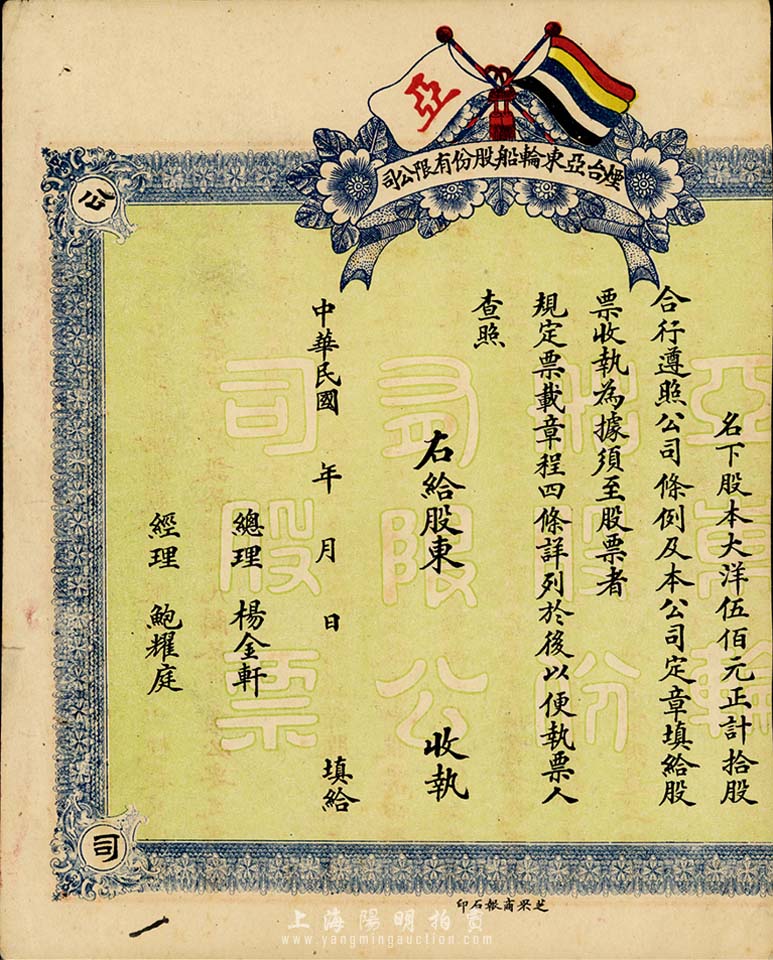 亞
煙台亞東輪船股份有限公司
公
司
名下股本大洋伍佰元正計拾股
合行遵照公司條例及本公司定章填給股
票收執為據須至股票者
規定票載章程四條詳列於後以便執票人
查照
右給股東 收執
中華民國 年 月 日 填給
總理 楊金軒
經理 鮑耀庭
芝罘商報石印
上海陽明拍賣
www.yangmingauction.com